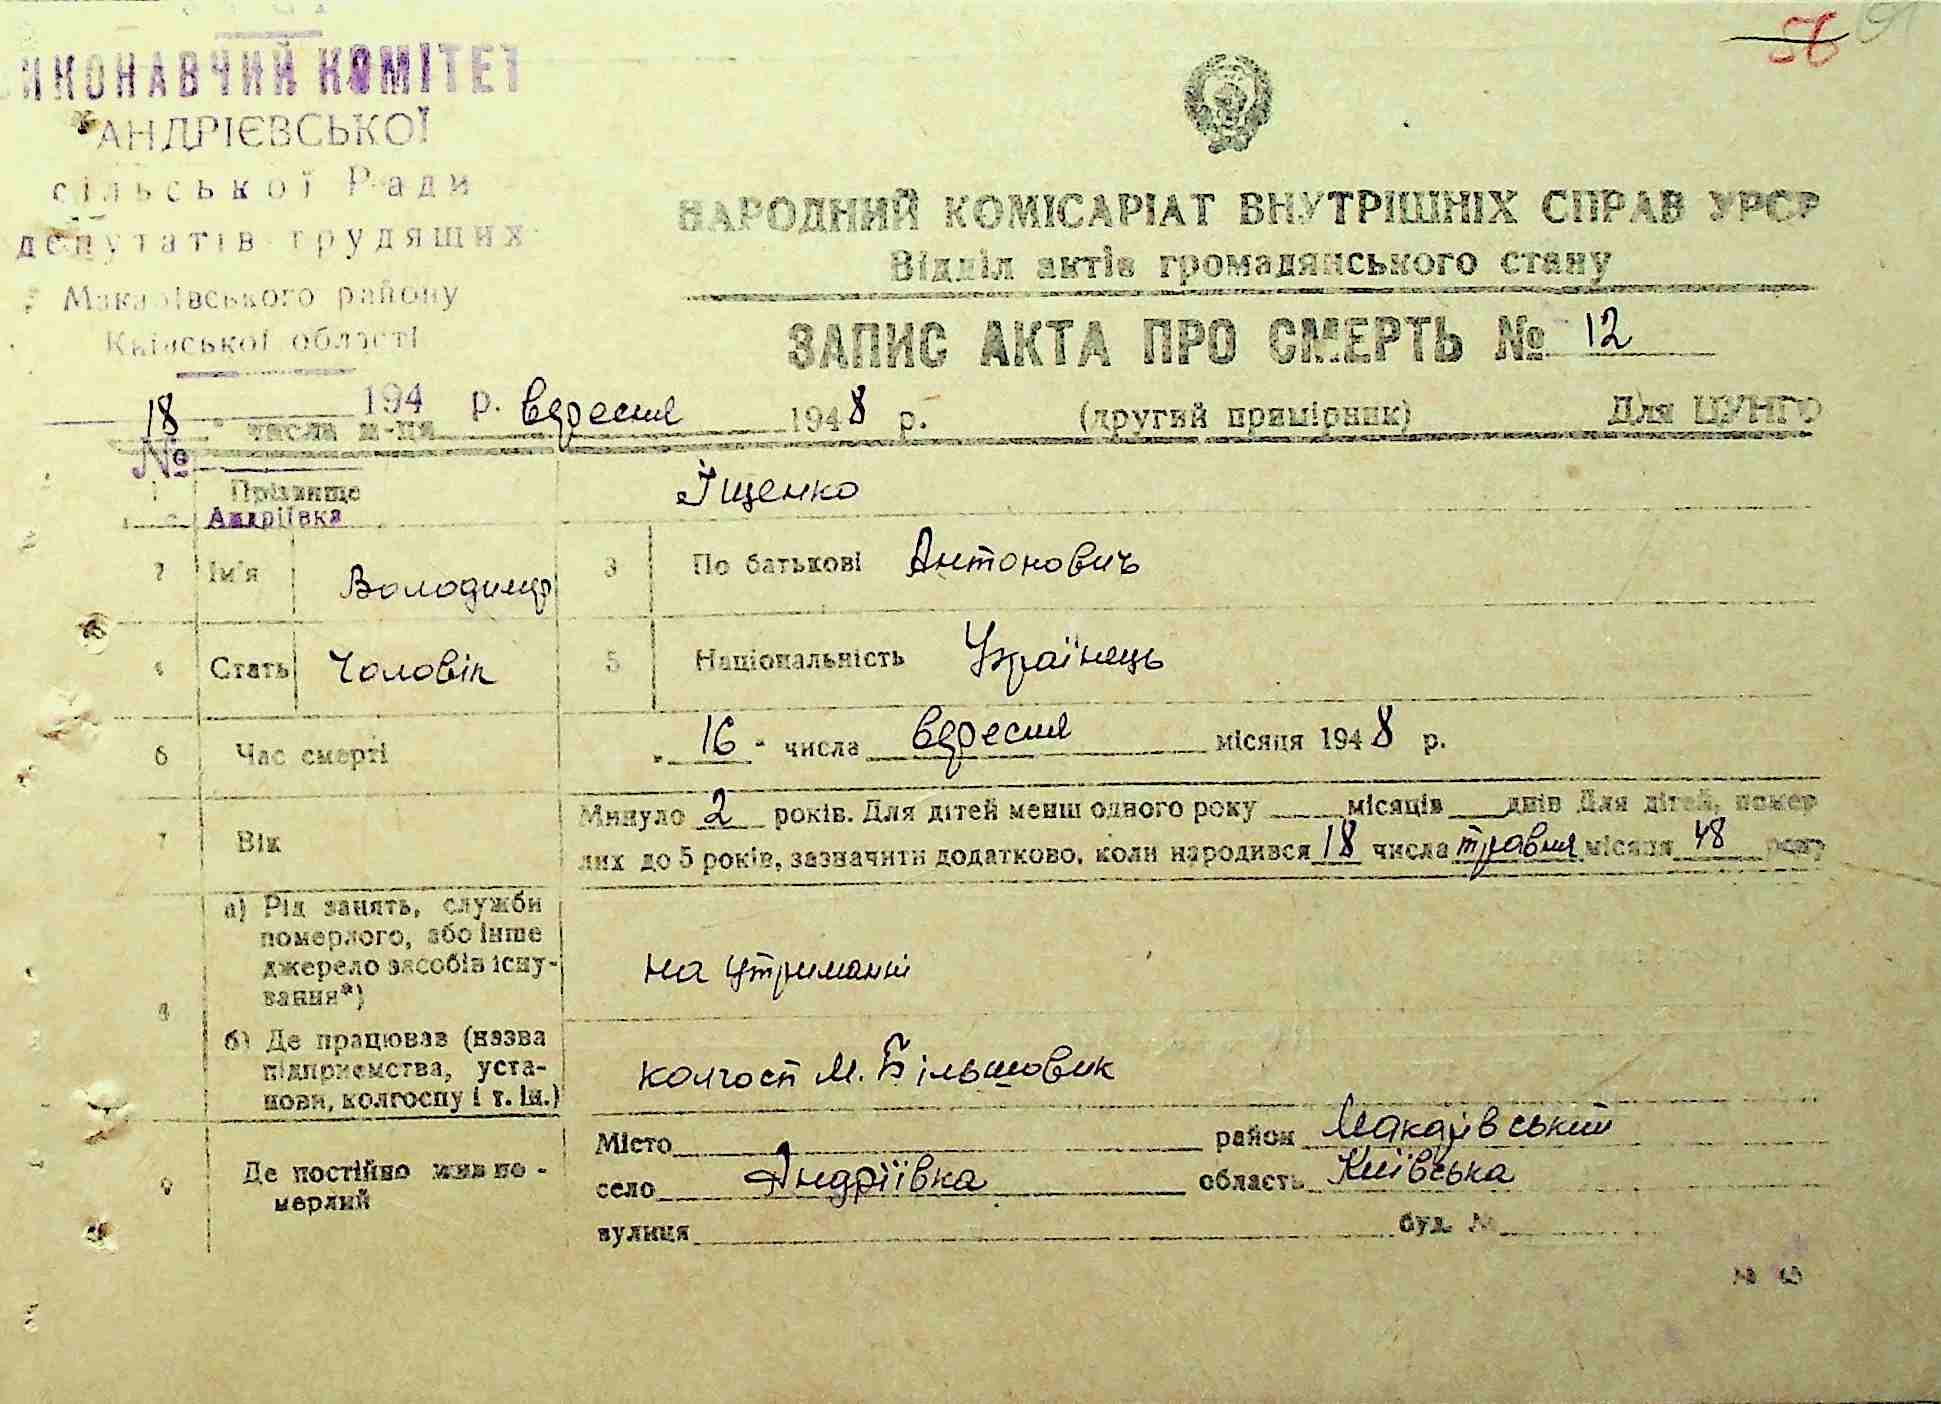 56
ВИКОНАВЧИЙ КОМІТЕТ
АНДРІЄВСЬКОЇ
сільської Ради
депутатів трудящих
Макарівського району
Київської області
194 р.
№
Андріївка
НАРОДНИЙ КОМІСАРІАТ ВНУТРІШНІХ СПРАВ УРСР
Відділ актів громадянського стану
ЗАПИС АКТА ПРО СМЕРТЬ № 12
18 числа м-ця вересня 1948 р. (другий примірник) Для ЦУНГО
1 Прізвище Іщенко
2 Ім'я Володимир 3 По батькові Антонович
4 Стать Чоловік 5 Національність Українець
6 Час смерті „16" числа вересня місяця 1948 р.
7 Вік Минуло 2 років. Для дітей менш одного року місяців днів Для дітей, помер
лих до 5 років, зазначити додатково, коли народився 18 числа травня місяця 48 року
8 а) Рід занять, служби
померлого, або інше
джерело засобів існу-
вання*)
на утриманні
б) Де працював (назва
підприємства, уста-
нови, колгоспу і т. ін.)
колгосп М. Більшовик
9 Де постійно жив по-
мерлий
Місто район Макарівський
село Андріївка область Київська
вулиця буд. №